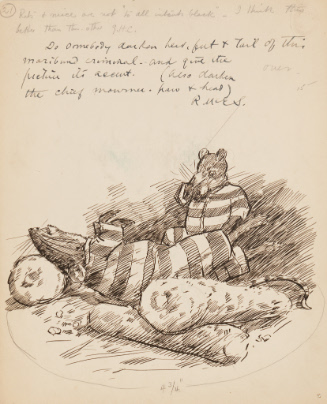 not "to all intents black" - I think this
better than the other J.M.C.
Do somebody darken head, feet & tail of this
moribund criminal - and give the
picture its accent. (Also darken
the chief mourner - paw & head)
R.W.C.S.
over
4 3/4"